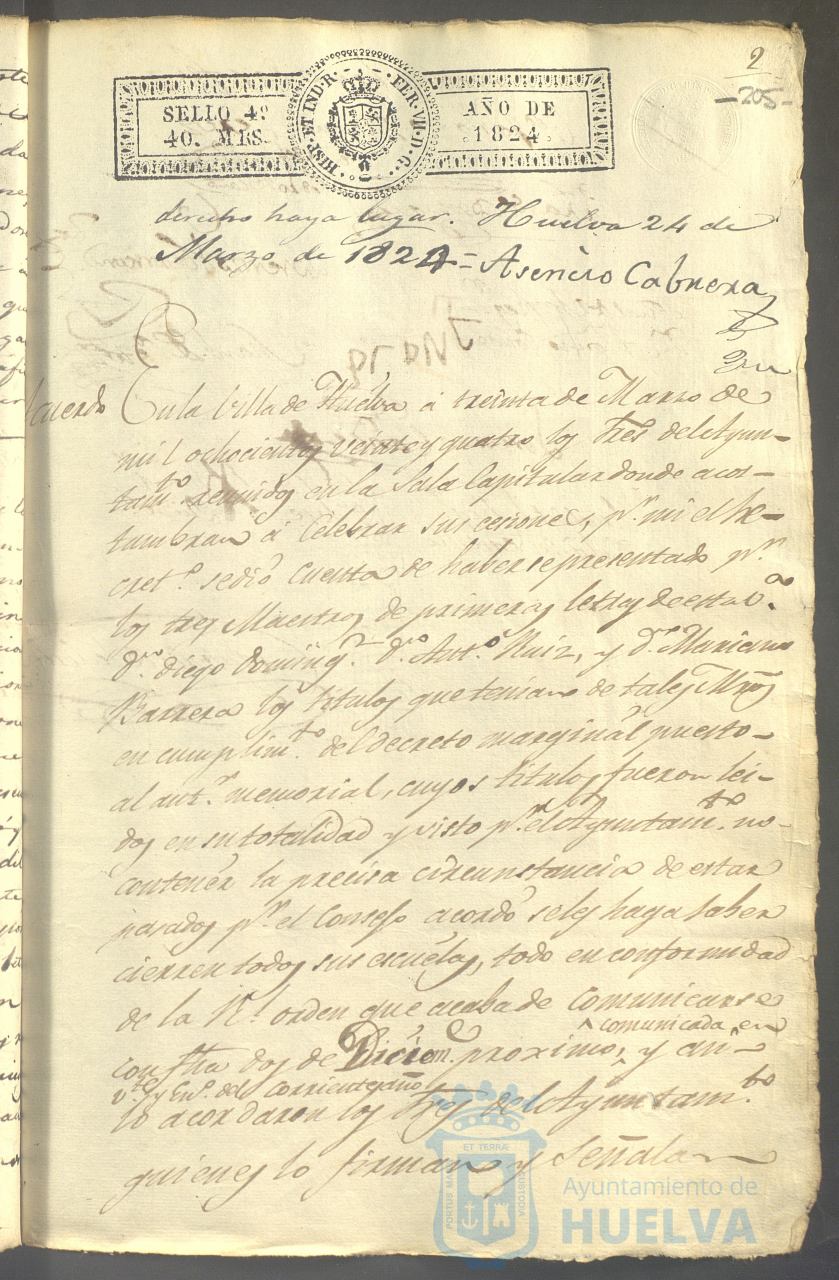 2
-205-
SELLO 4º
40. MRS.
HISP. ET IND. R. FER. VII. D. G.
AÑO DE
1824.
derecho haya lugar. Huelva 24 de
Marzo de 1824 = Asencio Cabrera
Acuerdo
En la Villa de Huelva á treinta de Marzo de
mil ochocientos veinte y quatro los Sres del Ayun-
tamto reunidos en la Sala Capitular donde acos-
tumbran á Celebrar sus cesiones, pr mi el Se-
creto se dió Cuenta de haberse presentado pr
los tres Maestros de primeras letras de esta Va
Dn diego Doming.z Dn Anto Ruiz, y Dn Mariano
Barrera los titulos que tenian de tales Mros
en cumplimto del Decreto marginal puesto
al antr memorial, cuyos titulos fueron lei-
dos en su totalidad y visto pr el Ayuntamto no
contener la precisa circunstancia de estar
pasados pr el Consejo acordó se les haga saber
cierren todos sus escuelas, todo en conformidad
de la Rl orden que acaba de comunicarse
con fha dos de Diciem. proximo, y an-
comunicada en
vte y En.o del corriente año
lo acordaron los Sres del Ayuntamto
quienes lo firman y señalan
PORTUS MARIS ET TERRAE CUSTODIA
Ayuntamiento de
HUELVA